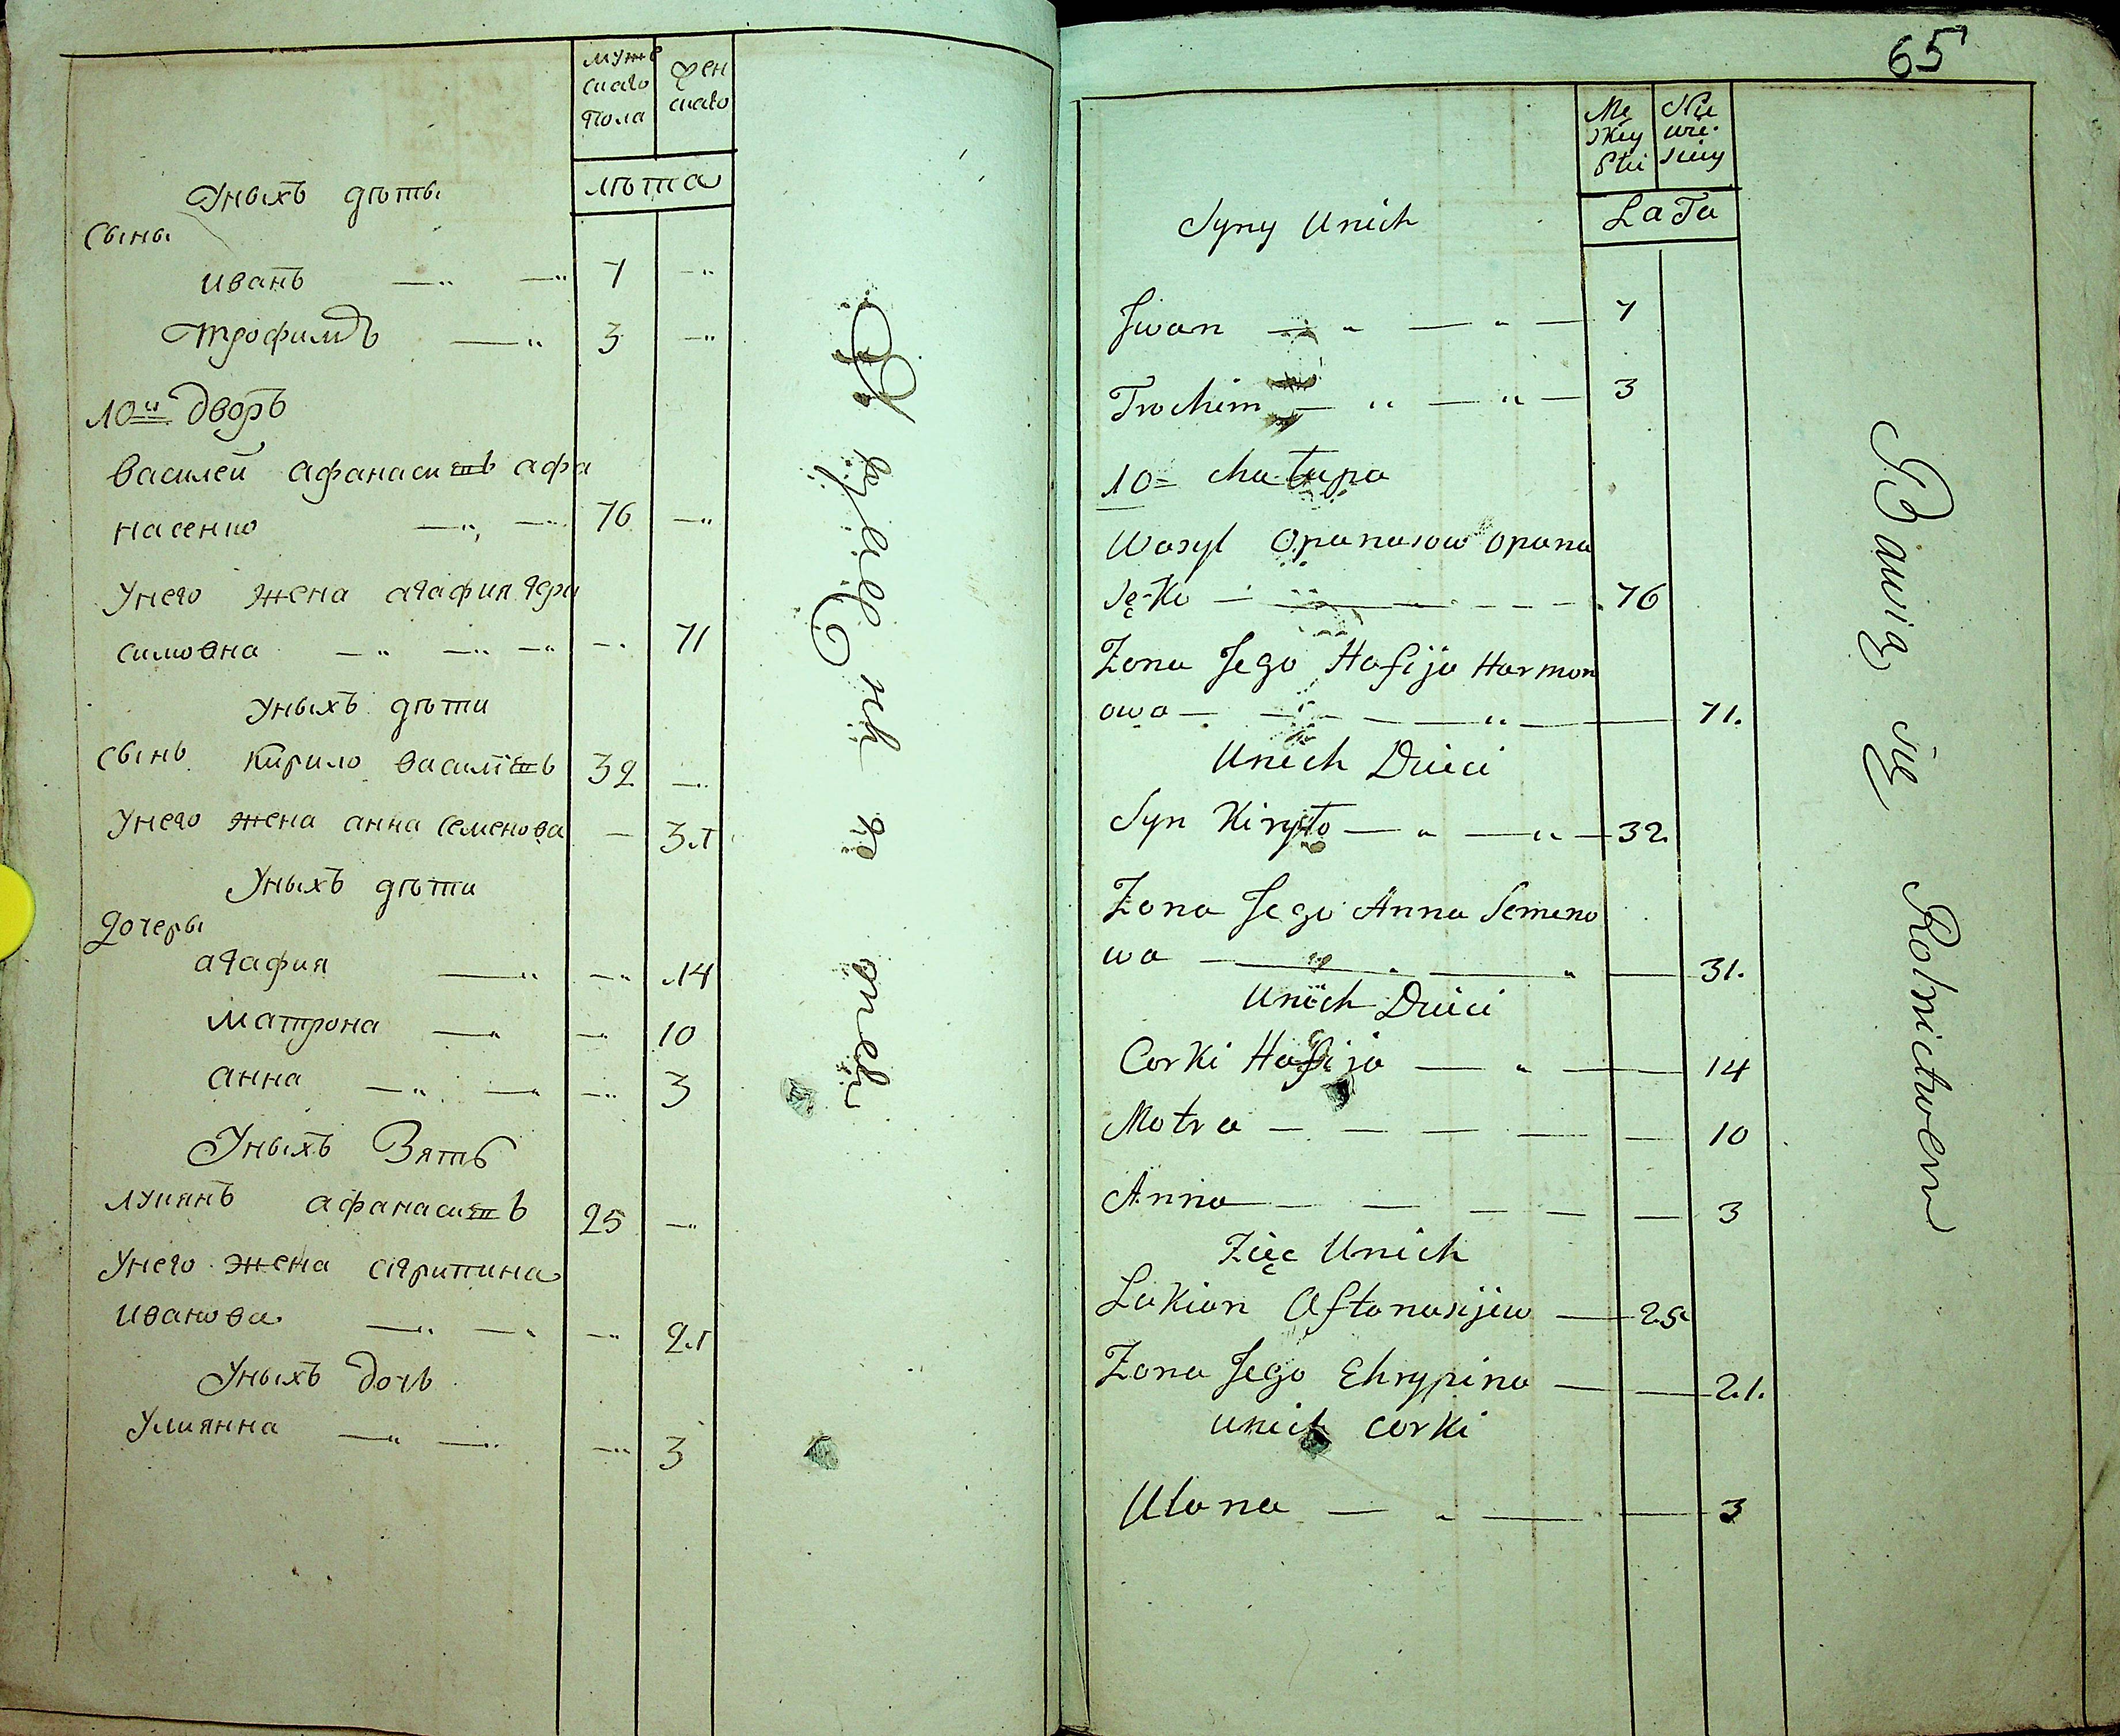 мужс
скаго
пола
жен
скаго
лѣта
Уныхъ дѣты
Сыны
иванъ 7
трофимъ 3
10й дворъ
василей афанасиевъ афа
насенко 76
Унего жена агафия гера
симовна 71
уныхъ дѣти
сынъ кирило василиевъ 32
Унего жена анна семенова 31
Уныхъ дѣти
дочеры
агафия 14
матрона 10
анна 3
Уныхъ Зять
лукянъ афанасиевъ 25
Унего жена агрипина
иванова 21
Уныхъ дочь
Улиянна 3
65
Mę
skiey
Płci
Nie
wie
sciey
LaTa
Syny Unich
Jwan 7
Trochim 3
10= chałupa
Wasyl Opanasow Opana
sęko 76
Zona Jego Hafija Harmon
owa 71.
Unich Dzieci
Syn Kiryło 32.
Zona Jego Anna Semeno
wa 31.
Unich Dzieci
Corki Hafija 14
Motra 10
Anna 3
Zięc Unich
Lukian Aftanasijew 25
Zona Jego Ehrypina 21.
unich corki
Ulana 3
Bawią się Rolnictwem